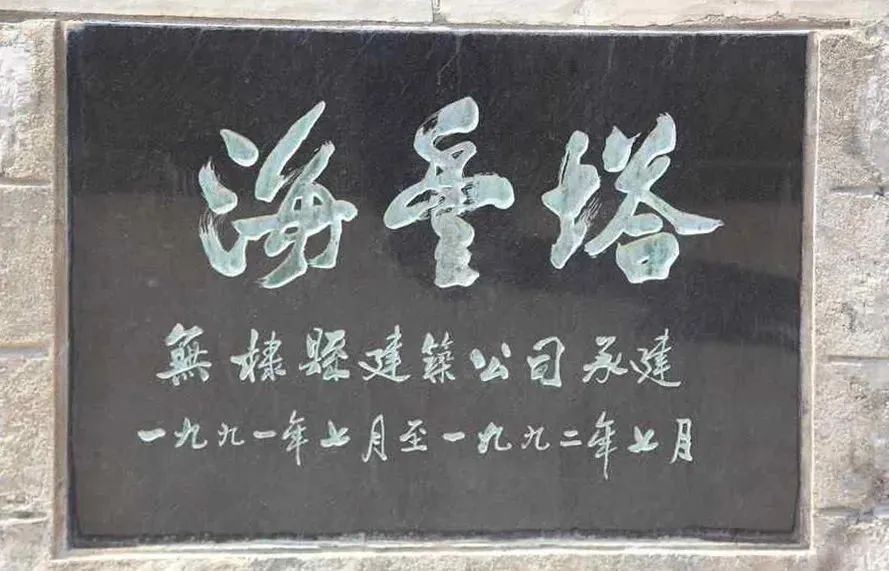 海豐塔
無棣縣建築公司承建
一九九一年七月至一九九二年七月